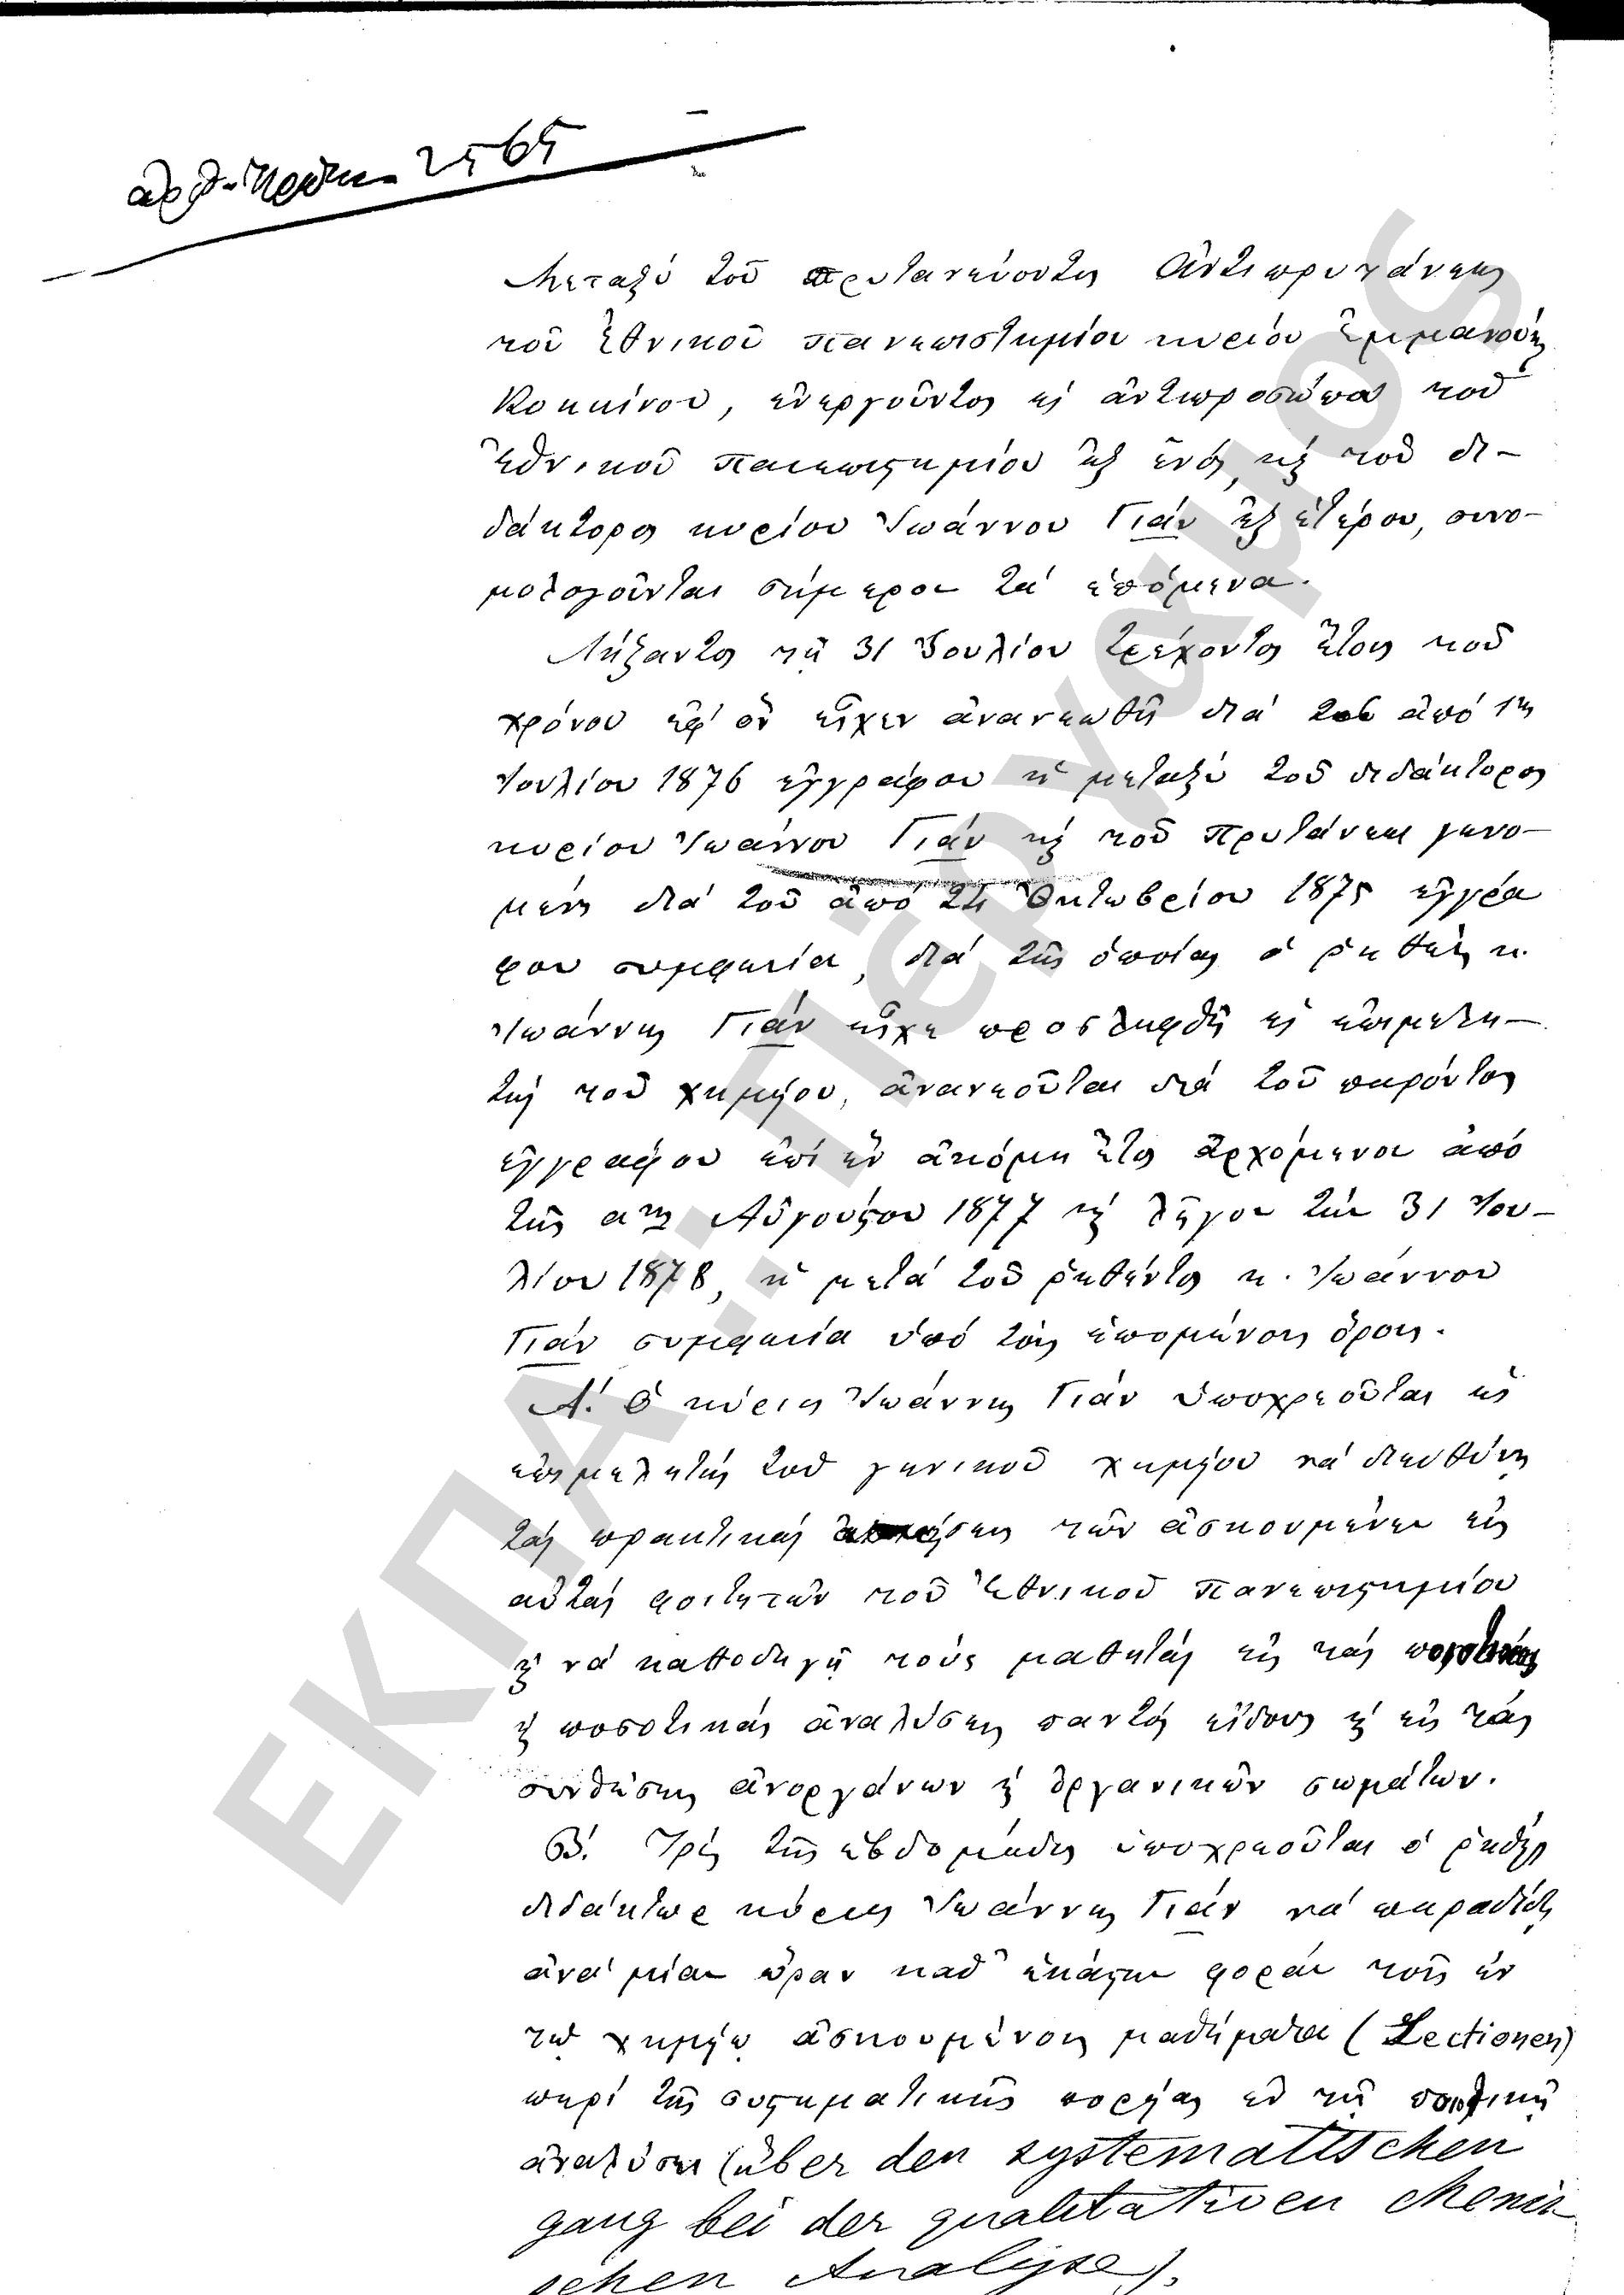 ἀριθ. Πρωτ. 2565
Μεταξύ τοῦ πρυτανεύοντος Ἀντιπρυτάνεως
τοῦ Ἐθνικοῦ πανεπιστημίου κυρίου Ἐμμανουήλ
Κοκκίνου, ἐνεργοῦντος ὡς ἀντιπροσώπου τοῦ
Ἐθνικοῦ Πανεπιστημίου ἐξ ἑνός, καὶ τοῦ δι-
δάκτορος κυρίου Ἰωάννου Γιάν ἐξ ἑτέρου, συνο-
μολογοῦνται σήμερον τά ἑπόμενα.
Λήξαντος τῇ 31 Ἰουλίου τρέχοντος ἔτους τοῦ
χρόνου ἐφ' ὅν εἶχεν ἀνανεωθῆ διά τοῦ ἀπό 1ης
Ἰουλίου 1876 ἐγγράφου ἡ μεταξύ τοῦ διδάκτορος
κυρίου Ἰωάννου Γιάν καὶ τοῦ Πρυτάνεως γενο-
μένη διά τοῦ ἀπό 24 Ὀκτωβρίου 1875 ἐγγρά
φου συμφωνία, διά τῆς ὁποίας ὁ ῥηθείς κ.
Ἰωάννης Γιάν εἶχε προσληφθῆ ὡς ἐπιμελη-
τής τοῦ χημείου, ἀνανεοῦται διά τοῦ παρόντος
ἐγγράφου ἐπί ἕν ἀκόμη ἔτος ἀρχόμενον ἀπό
τῆς α ης Αὐγούστου 1877 καὶ λῆγον τήν 31 Ἰου-
λίου 1878, ἡ μετά τοῦ ῥηθέντος κ. Ἰωάννου
Γιάν συμφωνία ὑπό τούς ἑπομένους ὅρους.
Α΄. Ὁ κύριος Ἰωάννης Γιάν ὑποχρεοῦται ὡς
ἐπιμελητής τοῦ γενικοῦ χημείου νά διευθύνῃ
τάς πρακτικάς ἀσκήσεις τῶν ἀσκουμένων εἰς
αὐτάς φοιτητῶν τοῦ Ἐθνικοῦ Πανεπιστημίου
καὶ νά καθοδηγῇ τούς μαθητάς εἰς τάς ποιοτικάς
καὶ ποσοτικάς ἀναλύσεις παντός εἴδους καὶ εἰς τάς
συνθέσεις ἀνοργάνων καὶ ὀργανικῶν σωμάτων.
Β΄. Τρίς τῆς ἑβδομάδος ὑποχρεοῦται ὁ ῥηθείς
διδάκτωρ κύριος Ἰωάννης Γιάν νά παραδίδῃ
ἀνά μίαν ὥραν καθ' ἑκάστην φοράν τοῖς ἐν
τῷ χημείῳ ἀσκουμένοις μαθήματα (Lectionen)
περί τῆς συστηματικῆς πορείας ἐν τῇ ποιοτικῇ
ἀναλύσει (über den systematischen
gang bei der qualitativen chemis
schen Analyse).
ΕΚΠΑ: Πέργαμος